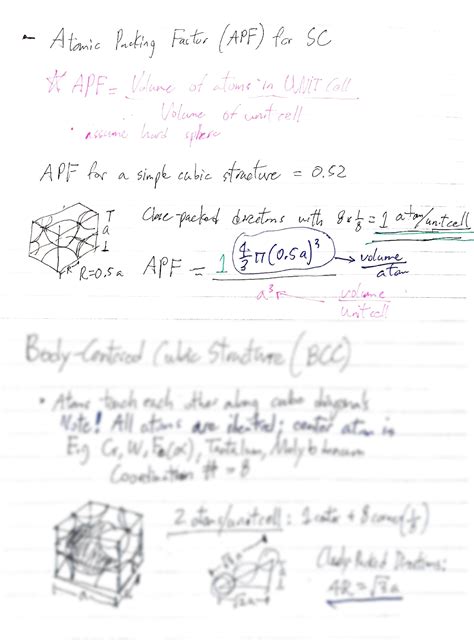 - Atomic Packing Factor (APF) for SC
☆ APF = Volume of atoms in UNIT Cell
Volume of unit cell
• assume hard sphere
APF for a simple cubic structure = 0.52
Close-packed directions with 8 x 1/8 = 1 atom/unit cell
a
R=0.5a
APF = 1 4/3 π(0.5a)³ → volume/atom
a³ ← volume/unit cell
Body-Centered Cubic Structure (BCC)
• Atoms touch each other along cube diagonals
Note! All atoms are identical; center atom is
E.g Cr, W, Fe(α), Tantalum, Molybdenum
Coordination # = 8
2 atoms/unit cell: 1 center + 8 corners(1/8)
√2a
Closely-Packed Directions:
4R = √3a
a